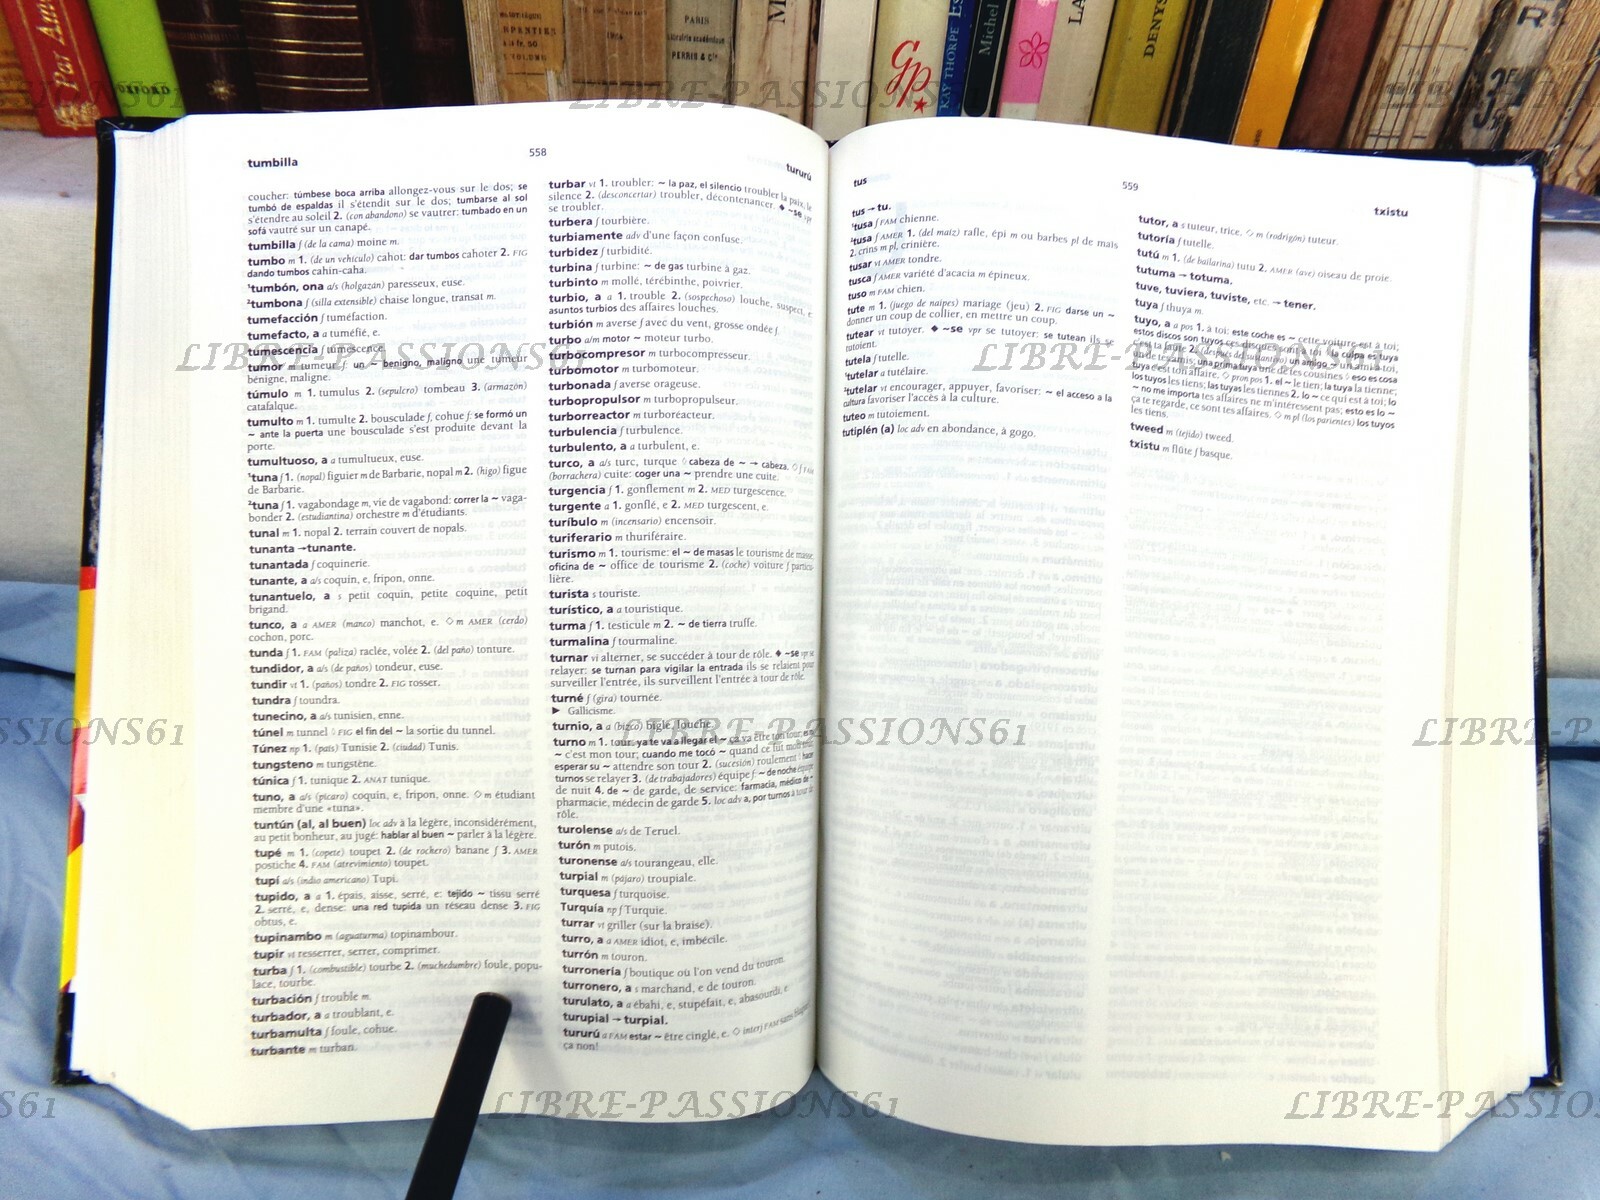 Par Am
OXFORD
1964
PARIS
Librairie académique
PERRIN & Cie
Gp
KAY THORPE
Michel
LA
DENYS
LIBRE-PASSIONS61
tumbilla
558
tururú
coucher: túmbese boca arriba allongez-vous sur le dos; se
tumbó de espaldas il s'étendit sur le dos; tumbarse al sol
s'étendre au soleil 2. (con abandono) se vautrer: tumbado en un
sofá vautré sur un canapé.
tumbilla f (de la cama) moine m.
tumbo m 1. (de un vehículo) cahot: dar tumbos cahoter 2. FIG
dando tumbos cahin-caha.
¹tumbón, ona a/s (holgazán) paresseux, euse.
²tumbona f (silla extensible) chaise longue, transat m.
tumefacción f tuméfaction.
tumefacto, a a tuméfié, e.
tumescencia f tumescence.
tumor m tumeur f: un ~ benigno, maligno une tumeur
bénigne, maligne.
túmulo m 1. tumulus 2. (sepulcro) tombeau 3. (armazón)
catafalque.
tumulto m 1. tumulte 2. bousculade f, cohue f: se formó un
~ ante la puerta une bousculade s'est produite devant la
porte.
tumultuoso, a a tumultueux, euse.
¹tuna f 1. (nopal) figuier m de Barbarie, nopal m 2. (higo) figue
de Barbarie.
²tuna f 1. vagabondage m, vie de vagabond: correr la ~ vaga-
bonder 2. (estudiantina) orchestre m d'étudiants.
tunal m 1. nopal 2. terrain couvert de nopals.
tunanta → tunante.
tunantada f coquinerie.
tunante, a a/s coquin, e, fripon, onne.
tunantuelo, a s petit coquin, petite coquine, petit
brigand.
tunco, a a AMER (manco) manchot, e. ◇ m AMER (cerdo)
cochon, porc.
tunda f 1. FAM (paliza) raclée, volée 2. (del paño) tonture.
tundidor, a a/s (de paños) tondeur, euse.
tundir vt 1. (paños) tondre 2. FIG rosser.
tundra f toundra.
tunecino, a a/s tunisien, enne.
túnel m tunnel ◊ FIG el fin del ~ la sortie du tunnel.
Túnez np 1. (país) Tunisie 2. (ciudad) Tunis.
tungsteno m tungstène.
túnica f 1. tunique 2. ANAT tunique.
tuno, a a/s (pícaro) coquin, e, fripon, onne. ◇ m étudiant
membre d'une «tuna».
tuntún (al, al buen) loc adv à la légère, inconsidérément,
au petit bonheur, au jugé: hablar al buen ~ parler à la légère.
tupé m 1. (copete) toupet 2. (de rochero) banane f 3. AMER
postiche 4. FAM (atrevimiento) toupet.
tupí a/s (indio americano) Tupi.
tupido, a a 1. épais, aisse, serré, e: tejido ~ tissu serré
2. serré, e, dense: una red tupida un réseau dense 3. FIG
obtus, e.
tupinambo m (aguaturma) topinambour.
tupir vt resserrer, serrer, comprimer.
turba f 1. (combustible) tourbe 2. (muchedumbre) foule, popu-
lace, tourbe.
turbación f trouble m.
turbador, a a troublant, e.
turbamulta f foule, cohue.
turbante m turban.
turbar vt 1. troubler: ~ la paz, el silencio troubler la paix, le
silence 2. (desconcertar) troubler, décontenancer. ◆ ~se vpr
se troubler.
turbera f tourbière.
turbiamente adv d'une façon confuse.
turbidez f turbidité.
turbina f turbine: ~ de gas turbine à gaz.
turbinto m mollé, térébinthe, poivrier.
turbio, a a 1. trouble 2. (sospechoso) louche, suspect, e:
asuntos turbios des affaires louches.
turbión m averse f avec du vent, grosse ondée f.
turbo a/m motor ~ moteur turbo.
turbocompresor m turbocompresseur.
turbomotor m turbomoteur.
turbonada f averse orageuse.
turbopropulsor m turbopropulseur.
turborreactor m turboréacteur.
turbulencia f turbulence.
turbulento, a a turbulent, e.
turco, a a/s turc, turque ◊ cabeza de ~ → cabeza. ◇ f FAM
(borrachera) cuite: coger una ~ prendre une cuite.
turgencia f 1. gonflement m 2. MED turgescence.
turgente a 1. gonflé, e 2. MED turgescent, e.
turíbulo m (incensario) encensoir.
turiferario m thuriféraire.
turismo m 1. tourisme: el ~ de masas le tourisme de masse,
oficina de ~ office de tourisme 2. (coche) voiture f particu-
lière.
turista s touriste.
turístico, a a touristique.
turma f 1. testicule m 2. ~ de tierra truffe.
turmalina f tourmaline.
turnar vi alterner, se succéder à tour de rôle. ◆ ~se vpr se
relayer: se turnan para vigilar la entrada ils se relaient pour
surveiller l'entrée, ils surveillent l'entrée à tour de rôle.
turné f (gira) tournée.
► Gallicisme.
turnio, a a (bizco) bigle, louche.
turno m 1. tour: ya te va a llegar el ~ ça va être ton tour; es
~ c'est mon tour; cuando me tocó ~ quand ce fut mon tour;
esperar su ~ attendre son tour 2. (sucesión) roulement ◊ hacer
turnos se relayer 3. (de trabajadores) équipe f: ~ de noche équipe
de nuit 4. de ~ de garde, de service: farmacia, médico de ~
pharmacie, médecin de garde 5. loc adv a, por turnos à tour de
rôle.
turolense a/s de Teruel.
turón m putois.
turonense a/s tourangeau, elle.
turpial m (pájaro) troupiale.
turquesa f turquoise.
Turquía np f Turquie.
turrar vt griller (sur la braise).
turro, a a AMER idiot, e, imbécile.
turrón m touron.
turronería f boutique où l'on vend du touron.
turronero, a s marchand, e de touron.
turulato, a a ébahi, e, stupéfait, e, abasourdi, e.
turupial → turpial.
tururú a FAM estar ~ être cinglé, e. ◇ interj FAM
ça non!
tus
559
txistu
tus → tu.
¹tusa f FAM chienne.
²tusa f AMER 1. (del maíz) rafle, épi m ou barbes pl de maïs
2. crins m pl, crinière.
tusar vt AMER tondre.
tusca f AMER variété d'acacia m épineux.
tuso m FAM chien.
tute m 1. (juego de naipes) mariage (jeu) 2. FIG darse un ~
donner un coup de collier, en mettre un coup.
tutear vt tutoyer. ◆ ~se vpr se tutoyer: se tutean ils se
tutoient.
tutela f tutelle.
¹tutelar a tutélaire.
²tutelar vt encourager, appuyer, favoriser: ~ el acceso a la
cultura favoriser l'accès à la culture.
tuteo m tutoiement.
tutiplén (a) loc adv en abondance, à gogo.
tutor, a s tuteur, trice. ◇ m (rodrigón) tuteur.
tutoría f tutelle.
tutú m 1. (de bailarina) tutu 2. AMER (ave) oiseau de proie.
tutuma → totuma.
tuve, tuviera, tuviste, etc. → tener.
tuya f thuya m.
tuyo, a a pos 1. à toi: este coche es ~ cette voiture est à toi;
estos discos son tuyos ces disques sont à toi; la culpa es tuya
c'est ta faute 2. (después del sustantivo) un amigo ~ un ami à toi,
un de tes amis; una prima tuya une de tes cousines ◊ eso es cosa
tuya c'est ton affaire. ◇ pron pos 1. el ~ le tien; la tuya la tienne;
los tuyos les tiens; las tuyas les tiennes 2. lo ~ ce qui est à toi; lo
~ no me importa tes affaires ne m'intéressent pas; esto es lo ~
ça te regarde, ce sont tes affaires. ◇ m pl (los parientes) los tuyos
les tiens.
tweed m (tejido) tweed.
txistu m flûte f basque.